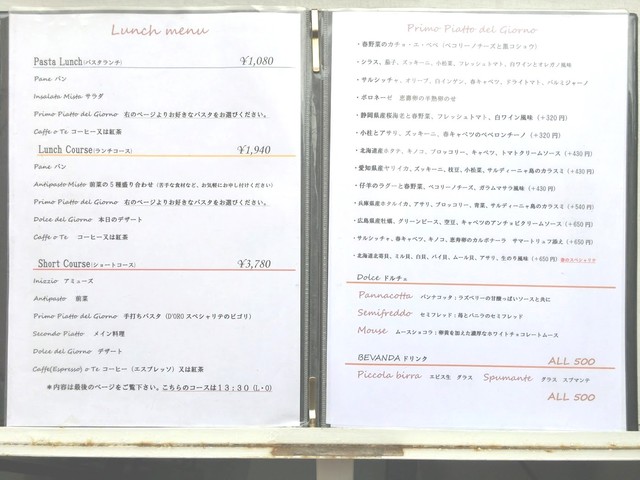 Lunch menu
Pasta Lunch(パスタランチ) ¥1,080
Pane パン
Insalata Mista サラダ
Primo Piatto del Giorno 右のページよりお好きなパスタをお選びください。
Caffe o Te コーヒー又は紅茶
Lunch Course(ランチコース) ¥1,940
Pane パン
Antipasto Misto 前菜の5種盛り合わせ(苦手な食材など、お気軽にお申し付けください)
Primo Piatto del Giorno 右のページよりお好きなパスタをお選びください。
Dolce del Giorno 本日のデザート
Caffe o Te コーヒー又は紅茶
Short Course(ショートコース) ¥3,780
Inizzio アミューズ
Antipasto 前菜
Primo Piatto del Giorno 手打ちパスタ(D'OROスペシャリテのピゴリ)
Secondo Piatto メイン料理
Dolce del Giorno デザート
Caffe(Espresso) o Te コーヒー(エスプレッソ)又は紅茶
*内容は最後のページをご覧下さい。こちらのコースは13:30(L・O)
Primo Piatto del Giorno
・春野菜のカチョ・エ・ペペ(ペコリーノチーズと黒コショウ)
・シラス、茄子、ズッキーニ、小松菜、フレッシュトマト、白ワインとオレガノ風味
・サルシッチャ、オリーブ、白インゲン、春キャベツ、ドライトマト、パルミジャーノ
・ボロネーゼ 恵寿卵の半熟卵のせ
・静岡県産桜海老と春野菜、フレッシュトマト、白ワイン風味(+320円)
・小柱とアサリ、ズッキーニ、春キャベツのペペロンチーノ(+320円)
・北海道産ホタテ、キノコ、ブロッコリー、キャベツ、トマトクリームソース(+430円)
・愛知県産ヤリイカ、ズッキーニ、枝豆、小松菜、サルディーニャ島のカラスミ(+430円)
・仔羊のラグーと春野菜、ペコリーノチーズ、ガラムマサラ風味(+430円)
・兵庫県産ホタルイカ、アサリ、ブロッコリー、青菜、サルディーニャ島のカラスミ(+540円)
・広島県産牡蠣、グリーンピース、空豆、キャベツのアンチョビクリームソース(+650円)
・サルシッチャ、春キャベツ、キノコ、恵寿卵のカルボナーラ サマートリュフ添え(+650円)
・北海道北寄貝、ミル貝、白貝、バイ貝、ムール貝、アサリ、生のり風味(+650円)
Dolce ドルチェ
Pannacotta パンナコッタ:ラズベリーの甘酸っぱいソースと共に
Semifreddo セミフレッド:苺とバニラのセミフレッド
Mouse ムースショコラ:卵黄を加えた濃厚なホワイトチョコレートムース
BEVANDA ドリンク ALL 500
Piccola birra エビス生 グラス Spumante グラス スプマンテ
ALL 500